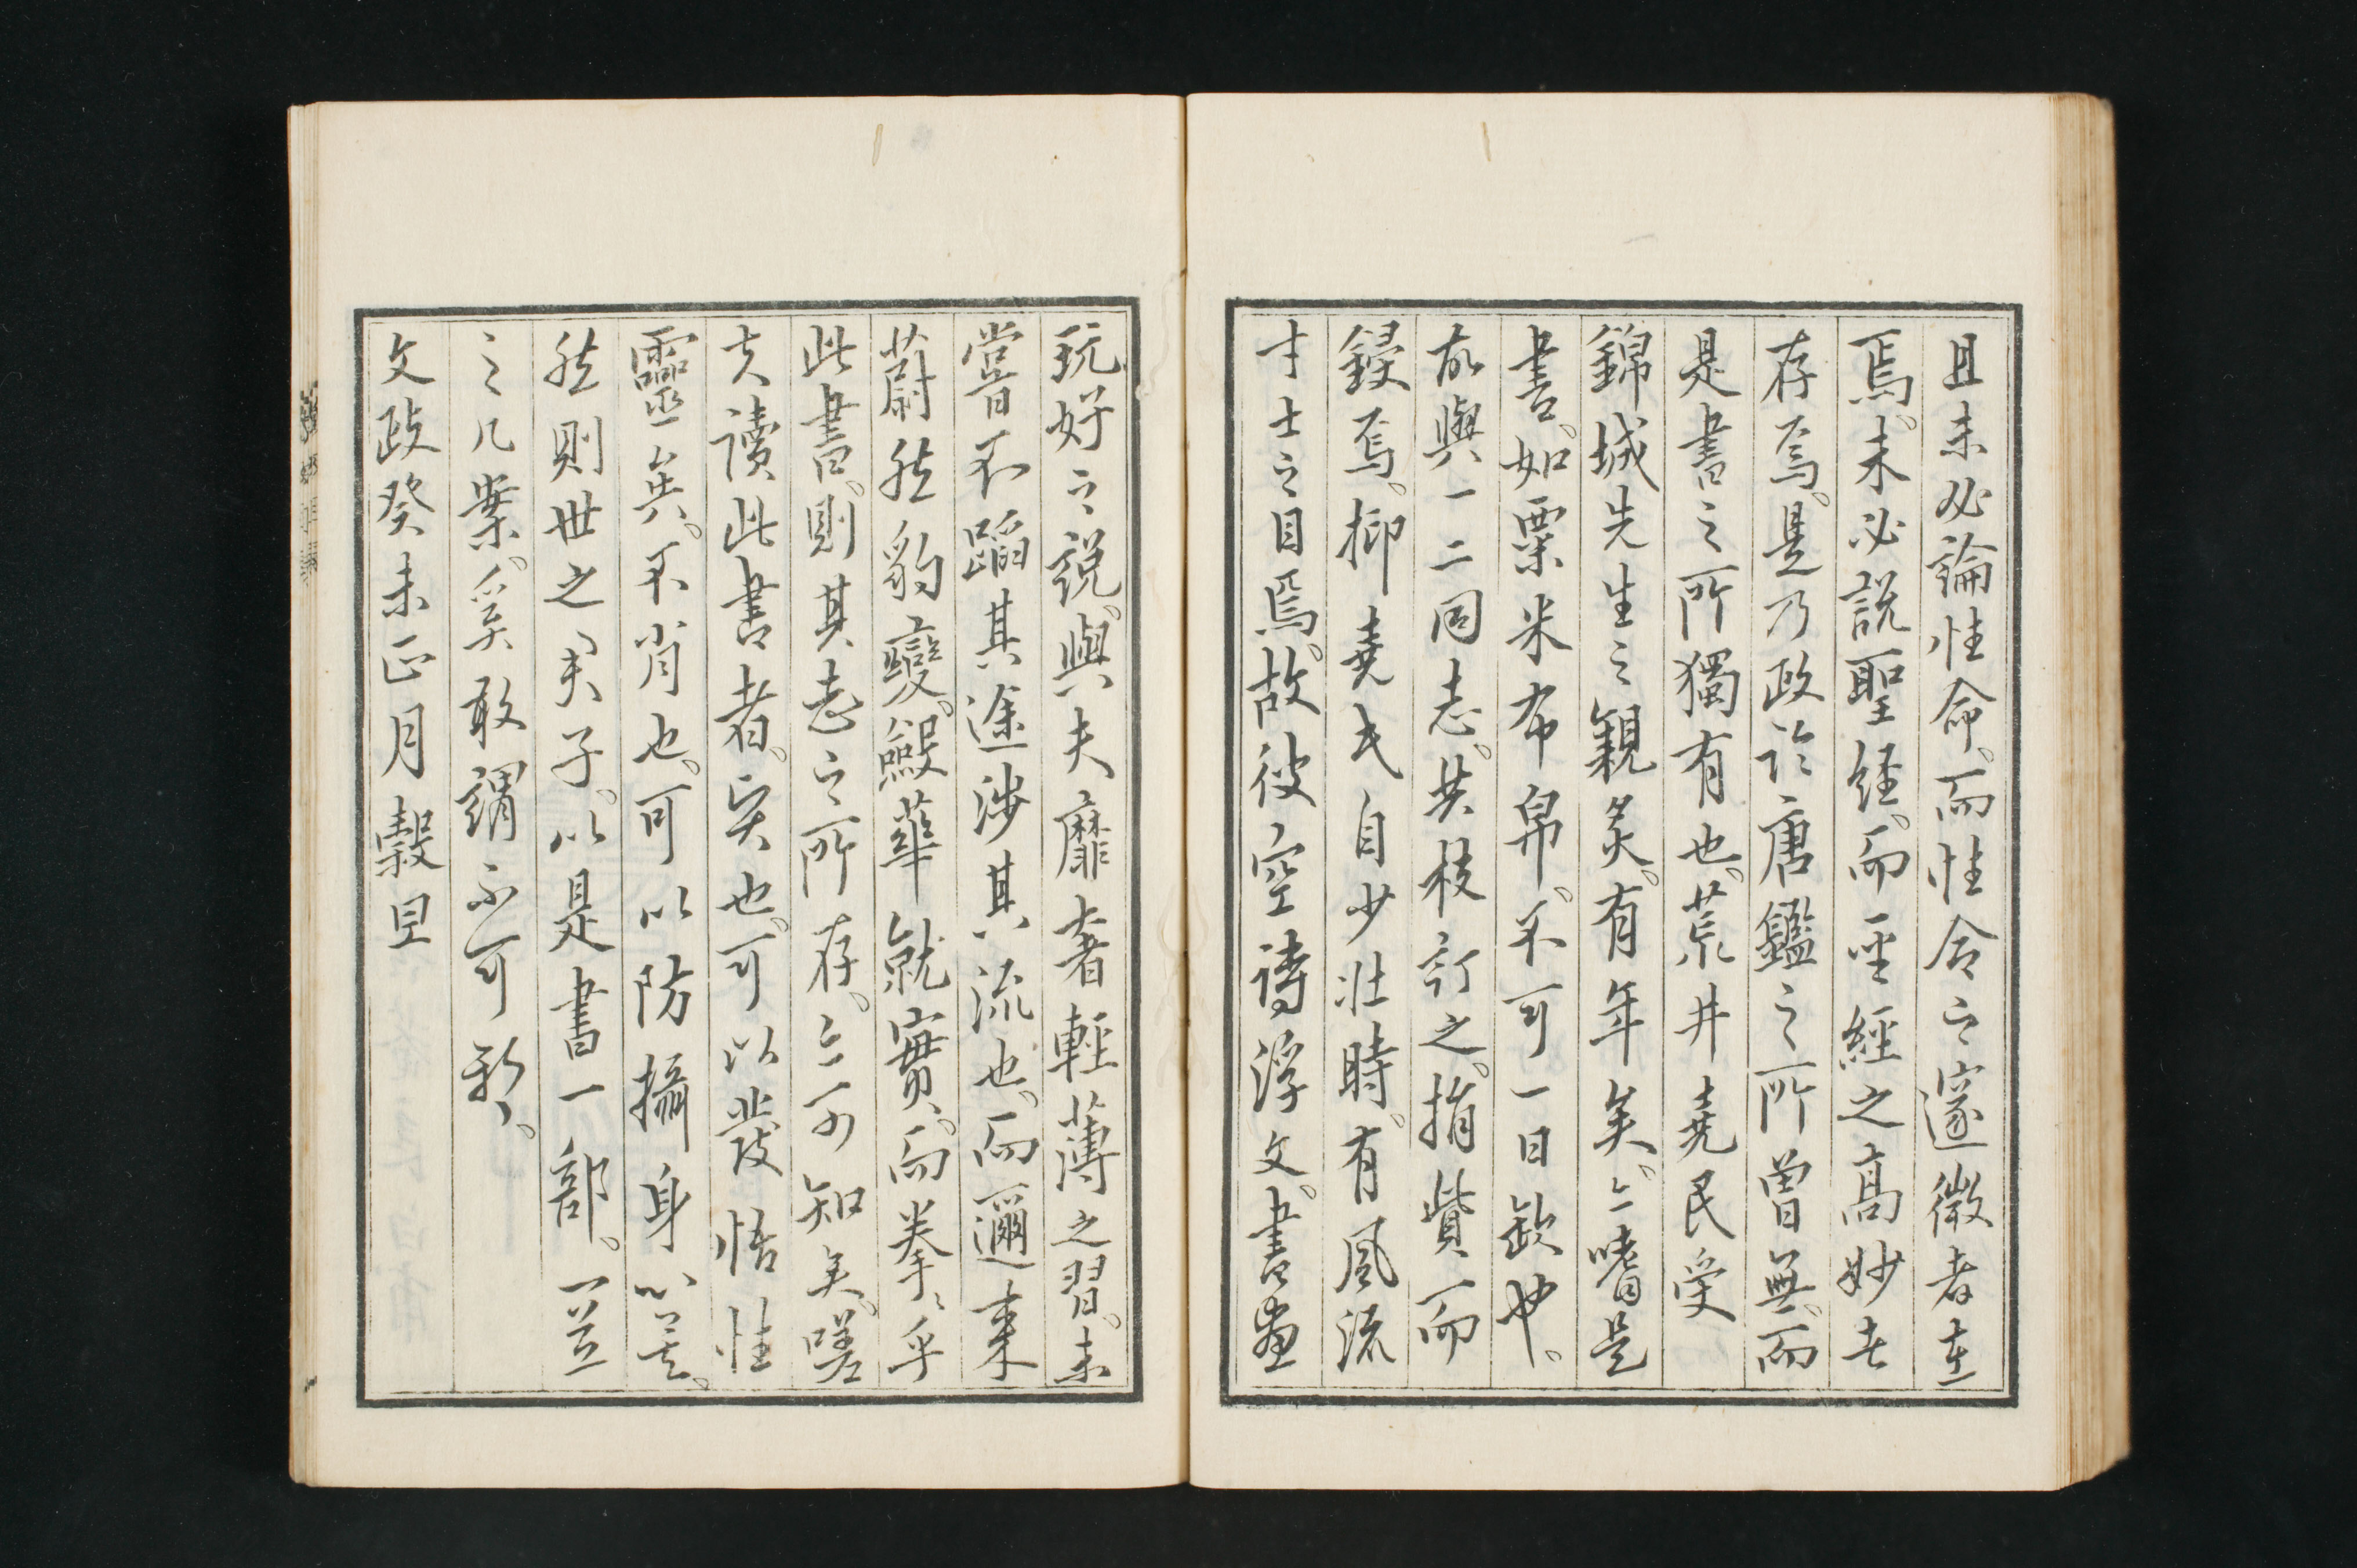 且未必論性命。而性命之邃微者在
焉。未必説聖経。而聖經之高妙者
存焉。是乃政于唐鑑之所曽無。而
是書之所獨有也。荒井堯民受
錦城先生之親炙。有年矣。亦嗜是
書。如粟米布帛。不可一日缺也。
故與一二同志。共校訂之。捐貲而
鋟焉。抑堯民自少壮時。有風流
才士之目焉。故彼空詩浮文。書畫
玩好之説。與夫靡奢輕薄之習。未
嘗不蹈其途渉其流也。而邇来
蔚然豹變。斂華就實。而拳〻乎
此書。則其志之所存。亦可知矣。嗟
夫讀此書者。賢也。可以發悟性
靈矣。不肖也。可以防撿身心矣。
然則世之君子。以是書一部。置
之几案。奚敢謂不可歟。
文政癸未正月穀旦